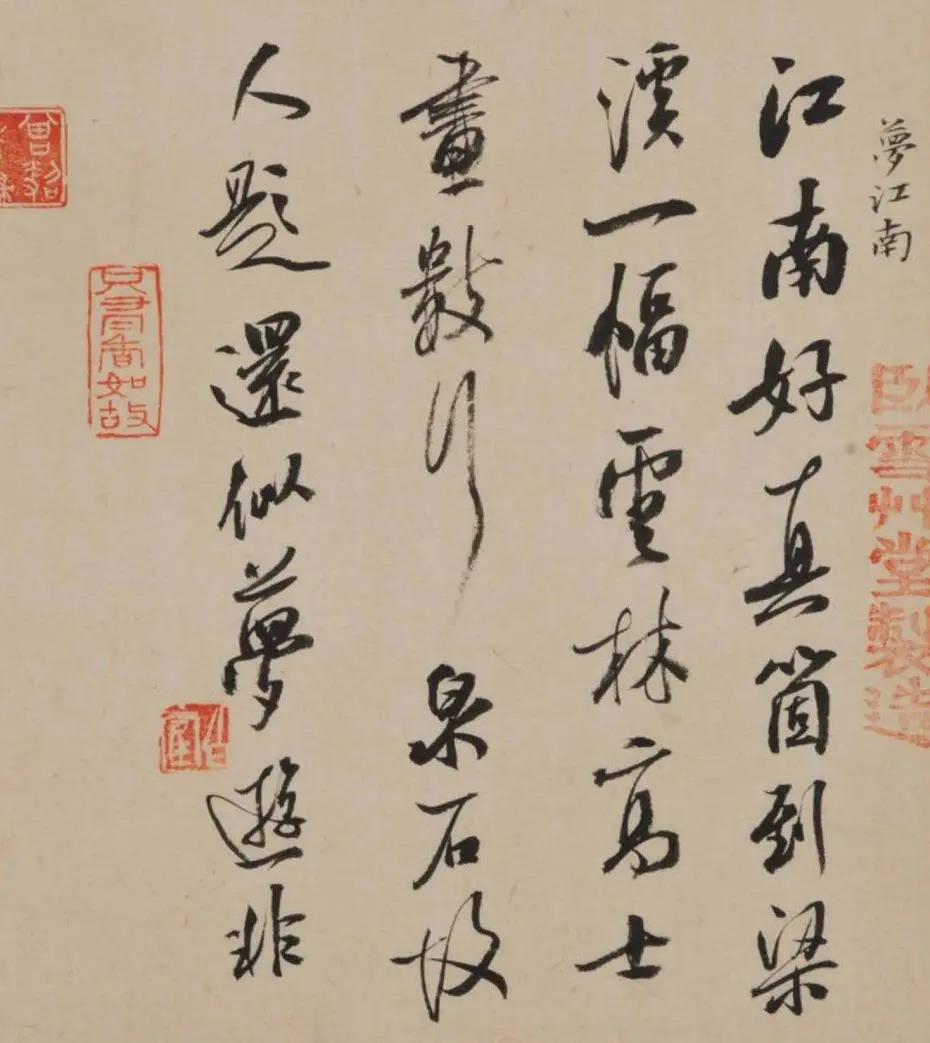 夢江南
江南好真箇到梁
溪一幅雲林高士
畫數行泉石故
人題還似夢遊非
臥雪艸堂製造
只有香如故